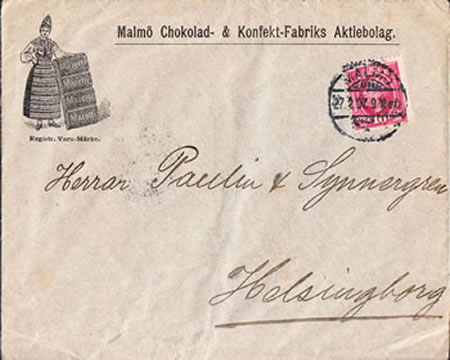 Malmö Chokolad- & Konfekt-Fabriks Aktiebolag.
Registr. Varu-Märke.
MALMÖ
Herrar Paulin & Synnergren
Helsingborg